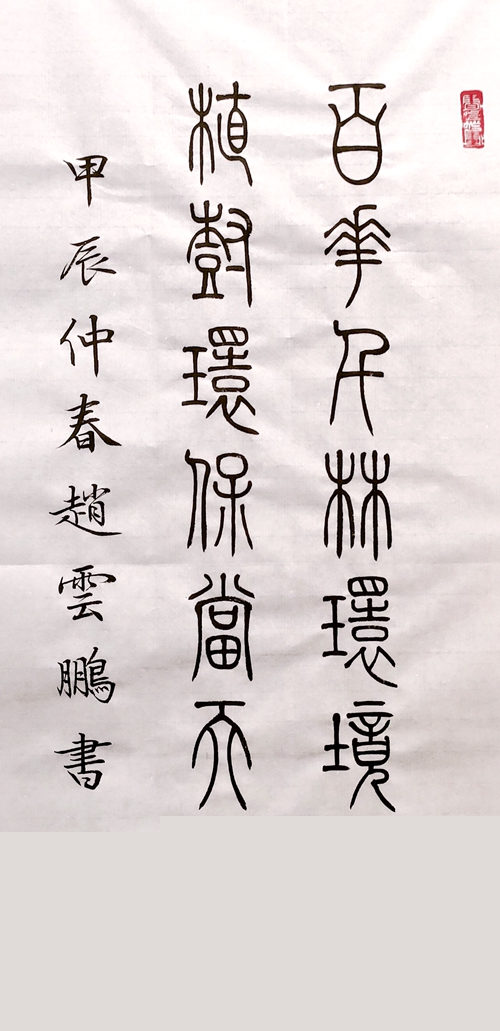 百華千林環境
植樹環保當天
甲辰仲春趙雲鵬書